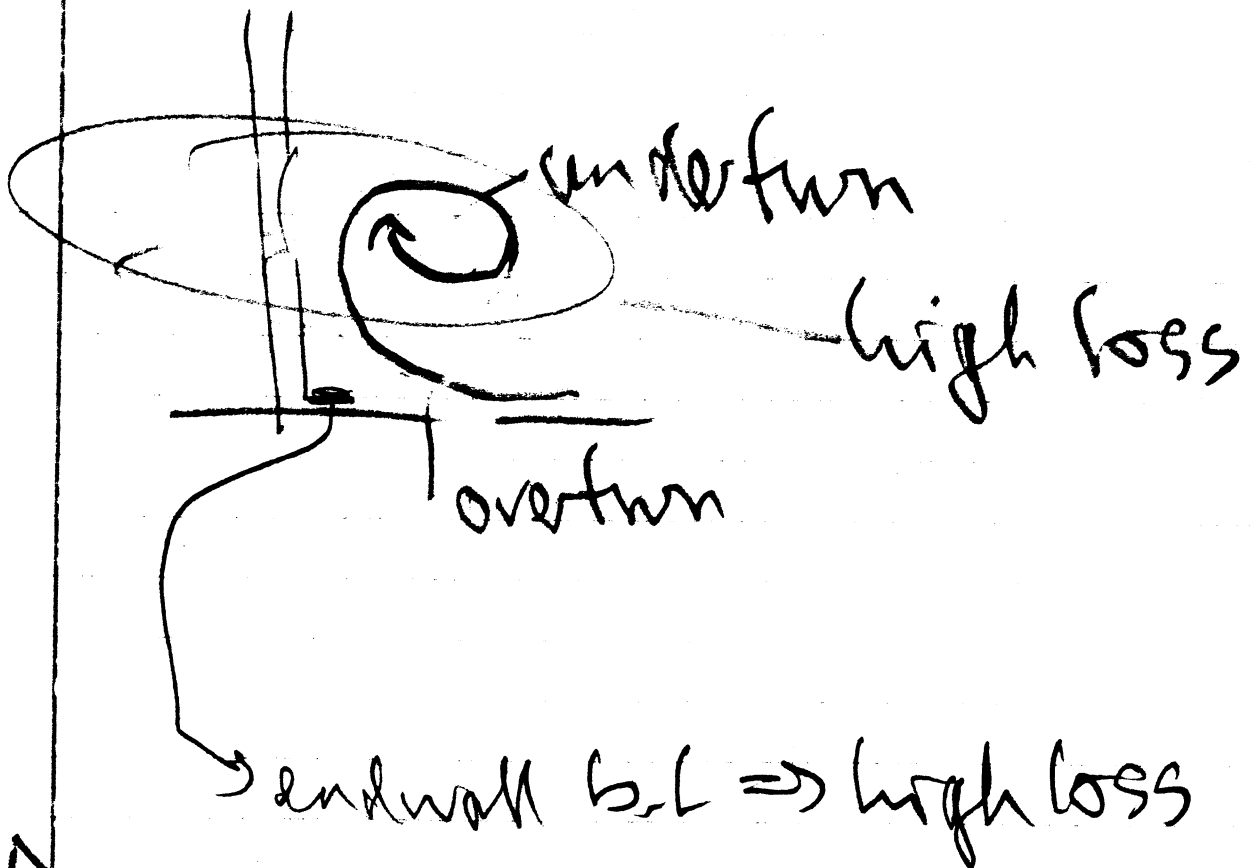 underturn
high loss
overturn
endwall b.l => high loss